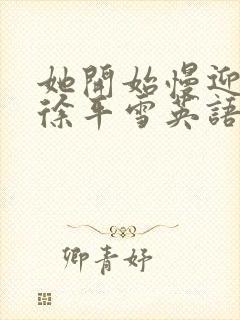 她開始慢迎
徐平雪英語
卿青妤